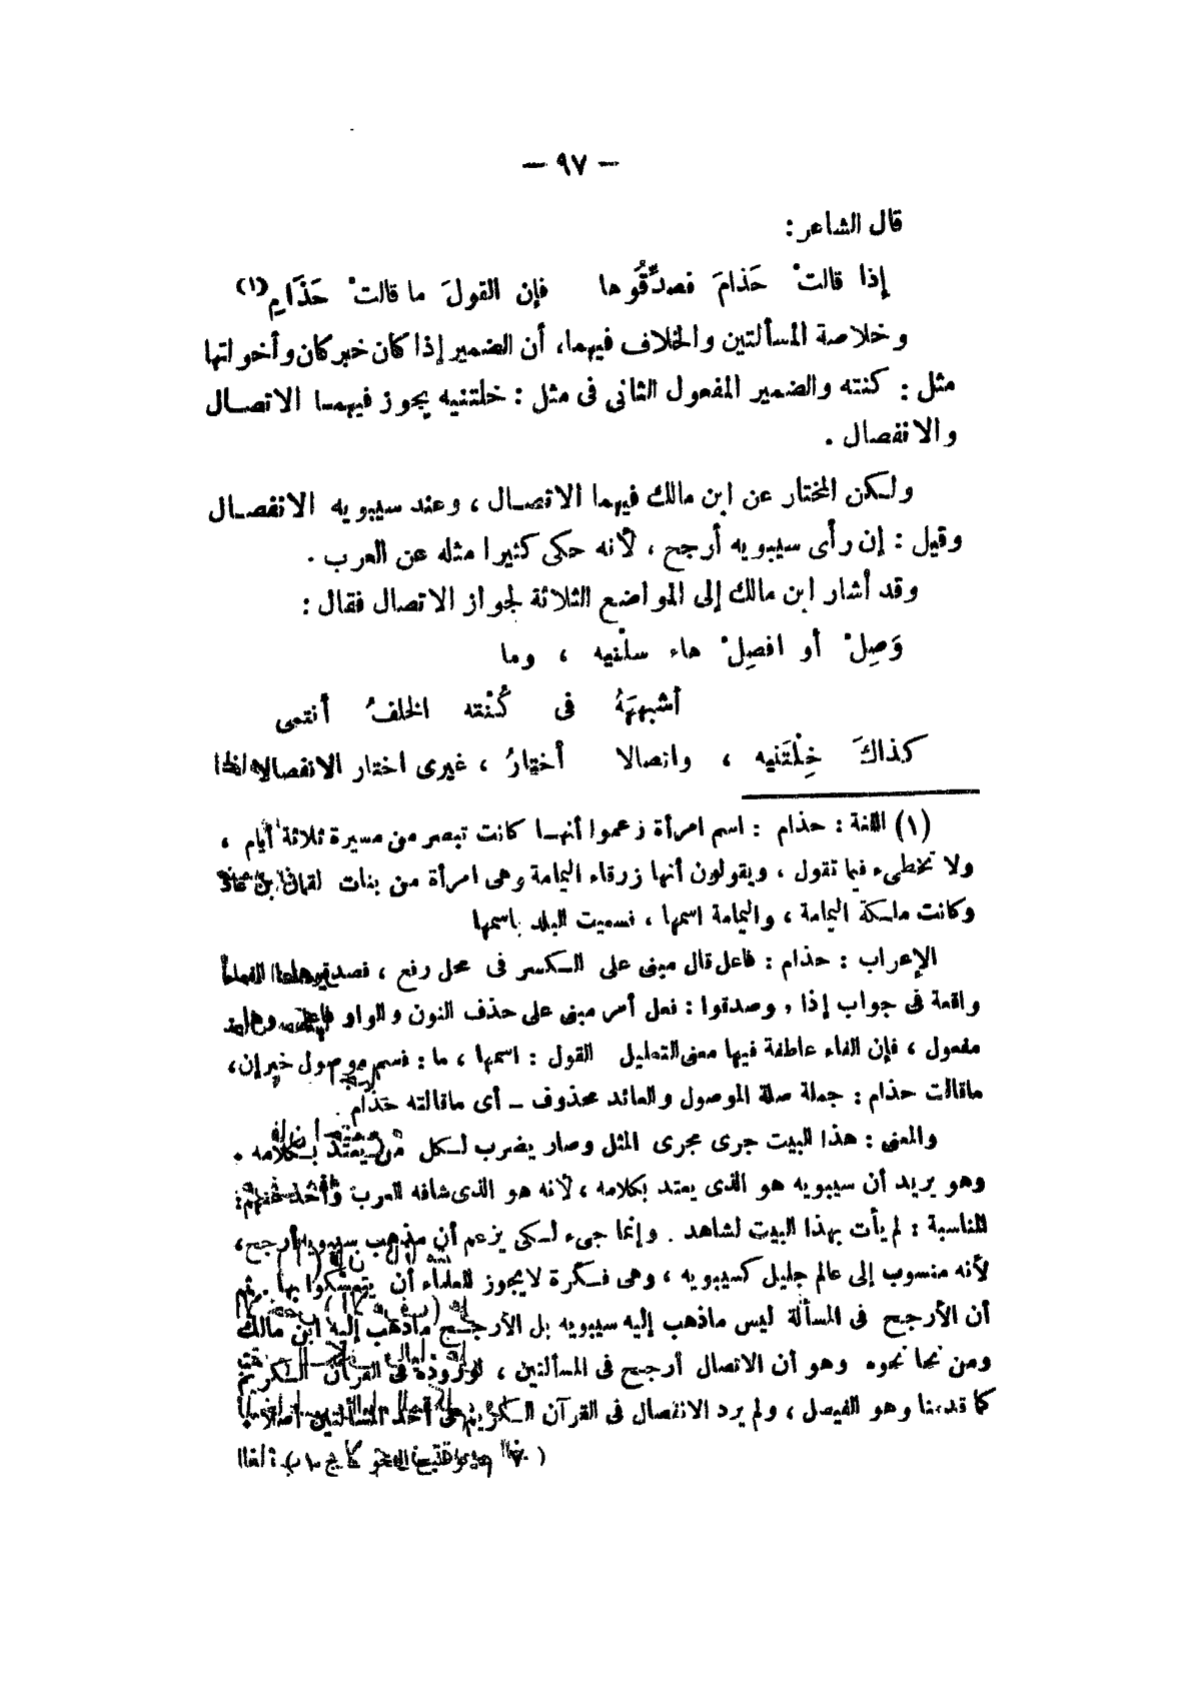 — ٩٧ —
قال الشاعر:
إذا قالتْ حَذامَ فصدِّقُوها فإن القولَ ما قالتْ حَذَامِ (١)
وخلاصة المسألتين والخلاف فيهما، أن الضمير إذا كان خبر كان وأخواتها
مثل : كنته والضمير المفعول الثانى فى مثل : خلتنيه يجوز فيهما الاتصال
والانفصال .
ولكن المختار عن ابن مالك فيهما الاتصال ، وعند سيبويه الانفصال
وقيل : إن رأى سيبويه أرجح ، لأنه حكى كثيرا مثله عن العرب .
وقد أشار ابن مالك إلى المواضع الثلاثة لجواز الاتصال فقال :
وَصِلْ أو افصِلْ هاء سلْنيه ، وما
أشبههَُ فى كُنْته الخلفُ أنتمى
كذاكَ خِلْتَنيه ، واتصالا أختارُ ، غيرى اختار الانفصالا
(١) اللغة : حذام : اسم امرأة زعموا أنها كانت تبصر من مسيرة ثلاثة أيام ،
ولا تخطىء فيما تقول ، ويقولون أنها زرقاء اليمامة وهى امرأة من بنات لقمان بن عاد
وكانت ملكة اليمامة ، واليمامة اسمها ، فسميت البلد باسمها
الإعراب : حذام : فاعل قال مبنى على الكسر فى محل رفع ، فصدقوها
واقعة فى جواب إذا ، وصدقوا : فعل أمر مبنى على حذف النون والواو فاعل وها
مفعول ، فإن الفاء عاطفة فيها معنى التعليل القول : اسمها ، ما : فسم موصول خبر إن،
ماقالت حذام : جملة صلة الموصول والعائد محذوف – أى ماقالته حذام .
والمعنى : هذا البيت جرى مجرى المثل وصار يضرب لكل من يعتد بكلامه .
وهو يريد أن سيبويه هو الذى يعتد بكلامه ، لأنه هو الذى شافه العرب وأخذ عنهم
المناسبة : لم يأت بهذا البيت لشاهد . وإنما جىء لكى يزعم أن مذهب سيبويه أرجح،
لأنه منسوب إلى عالم جليل كسيبويه ، وهى فكرة لايجوز للعلماء أن يتمسكوا بها . ثم
أن الأرجح فى المسألة ليس ماذهب إليه سيبويه بل الأرجح ماذهب إليه ابن مالك
ومن نحا نحوه وهو أن الاتصال أرجح فى المسألتين ، لوروده فى القرآن الكريم
كما قدمنا وهو الفيصل ، ولم يرد الانفصال فى القرآن الكريم فى أحد المسألتين